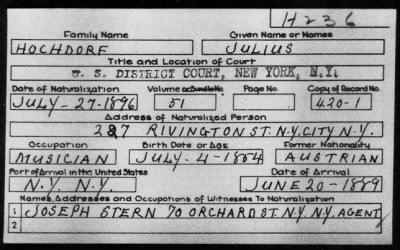 H236
Family Name Given Name or Names
HOCHDORF JULIUS
Title and Location of Court
U. S. DISTRICT COURT, NEW YORK, N.Y.
Date of Naturalization Volume or Bundle No. Page No. Copy of Record No.
JULY-27-1896 51 420-1
Address of Naturalized Person
287 RIVINGTON ST. N.Y. CITY N.Y.
Occupation Birth Date or Age Former Nationality
MUSICIAN JULY-4-1854 AUSTRIAN
Port of Arrival in the United States Date of Arrival
N.Y. N.Y. JUNE 20-1889
Names, Addresses and Occupations of Witnesses To Naturalization
1 JOSEPH STERN 70 ORCHARD ST. N.Y. N.Y. AGENT
2